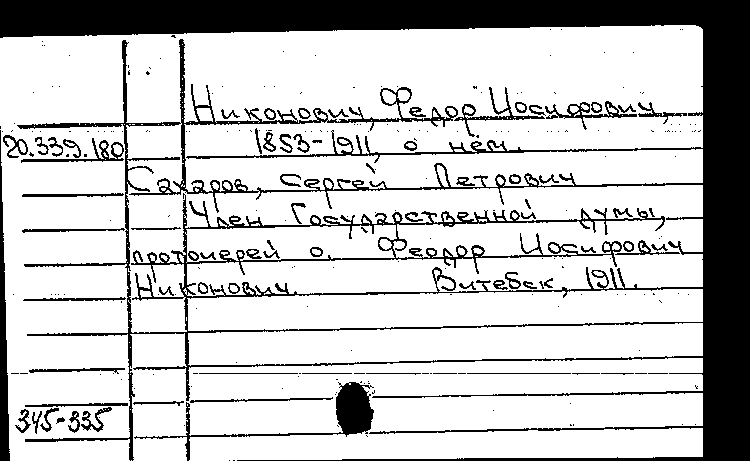 Никонович, Федор Иосифович,
20.339.180 1853-1911, о нём.
Сахаров, Сергей Петрович
Член Государственной думы,
протоиерей о. Феодор Иосифович
Никонович. Витебск, 1911.
345-335